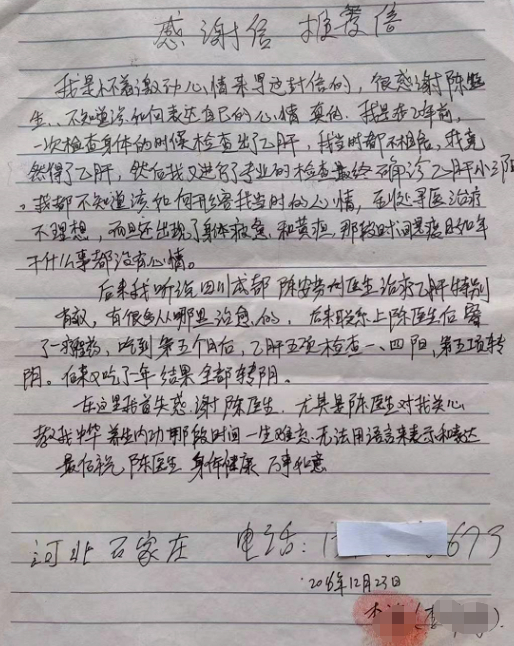 感谢信 推广信
我是怀着激动心情来写这封信的，很感谢陈医
生、不知道该如何表达自己的心情 真的. 我是在2年前，
一次检查身体的时候检查出了乙肝，我当时都不相信，我竟
然得了乙肝，然后我又进行了专业的检查最终确诊乙肝小三阳
，我都不知道该如何形容我当时的心情，到处寻医治疗
不理想，而且还出现了身体疲惫 和黄疸，那段时间是度日如年
干什么事都没有心情。
后来我听说四川成都 陈安 医生治疗乙肝特别
有效，有很多人从哪里治愈的，后来联系上陈医生后
了一 药，吃到第五个月后，乙肝五项检查一、四阳，第五项转
阴。后来又吃了一年 结果全部转阴。
在这里我首先感谢陈医生. 尤其是陈医生对我关心
教我中华养生内功 那段时间一生难忘. 无法用语言来表示和表达
最后祝 陈医生 身体健康 万事如意
河北 石家庄 电话: 1 673
12月23日
李